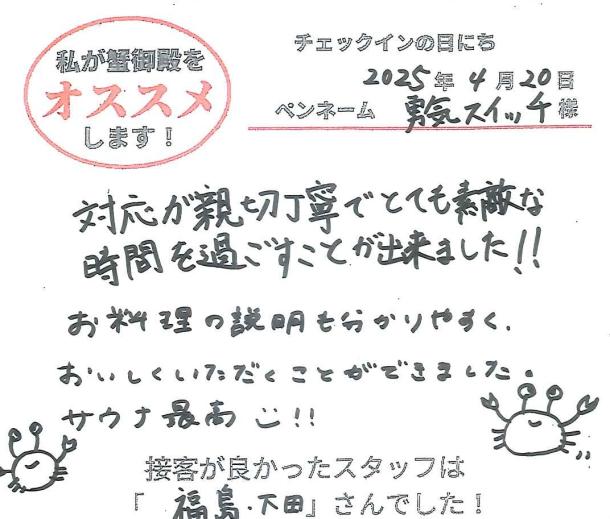 私が蟹御殿を
オススメ
します！
チェックインの日にち
2025年4月20日
ペンネーム 勇気スイッチ様
対応が親切丁寧でとても素敵な
時間を過ごすことが出来ました!!
お料理の説明も分かりやすく、
おいしくいただくことができました。
サウナ最高!!
接客が良かったスタッフは
「福島・下田」さんでした！